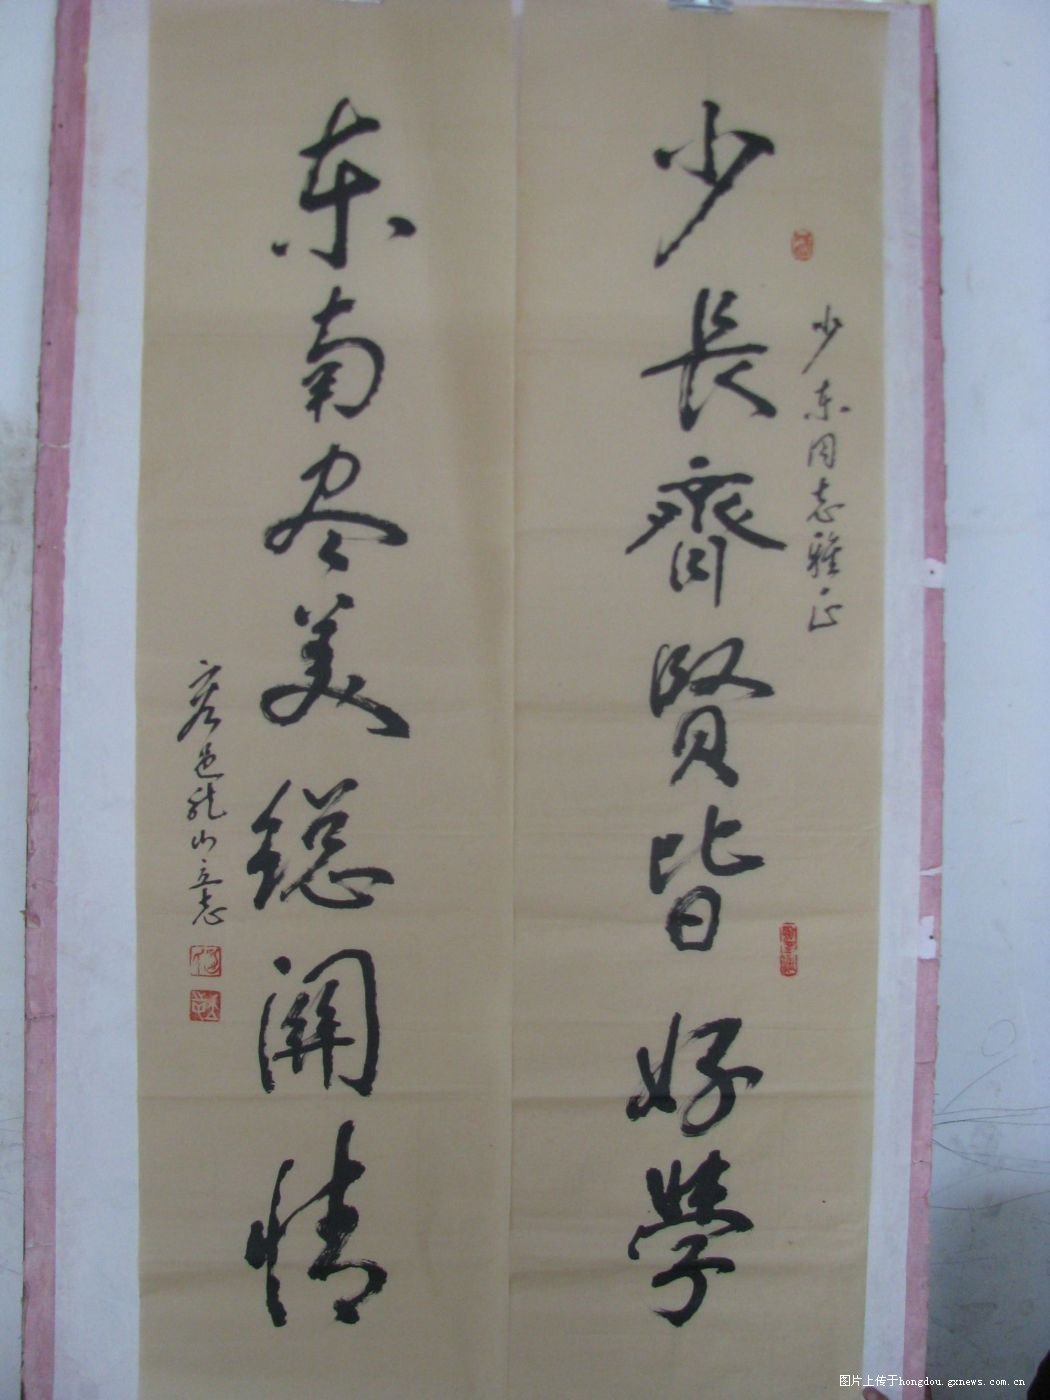 少東同志雅正
少長齊賢皆好學
东南尽美總關情
彦邑龍山立志
图片上传于hongdou.gxnews.com.cn